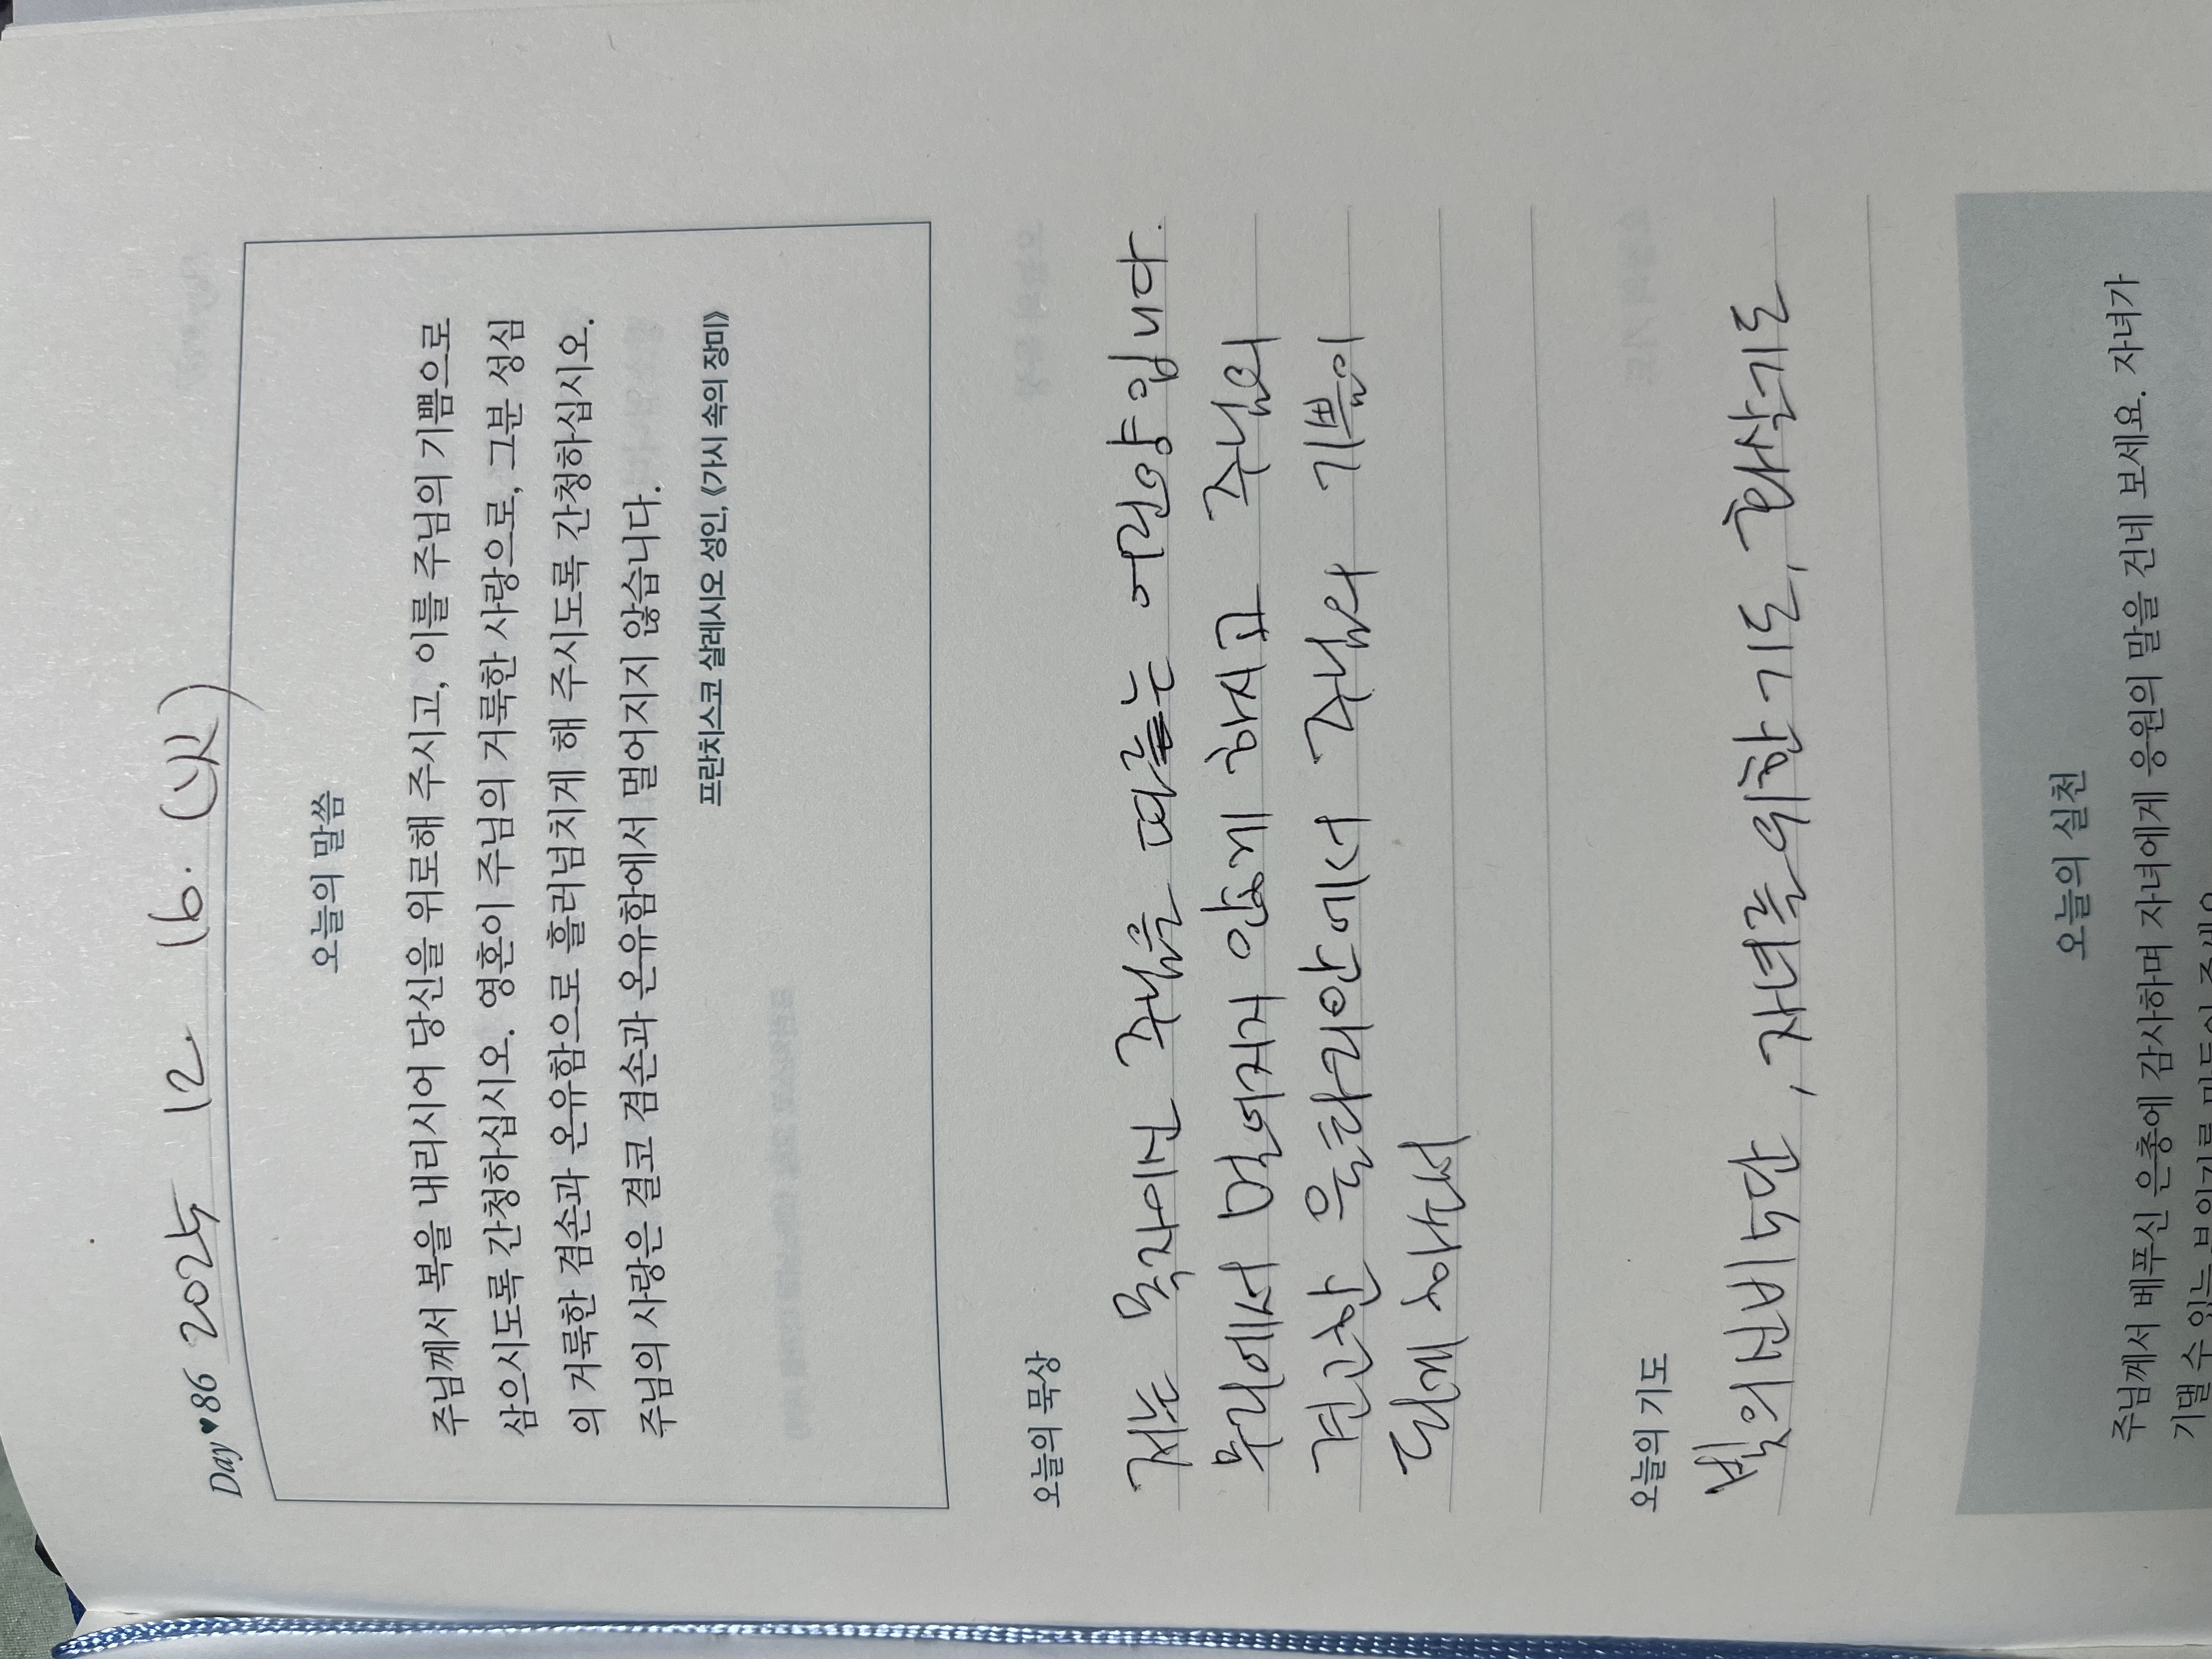 Day♥86 2025 12. 16. (화)
오늘의 말씀
주님께서 복을 내리시어 당신을 위로해 주시고, 이를 주님의 기쁨으로
삼으시도록 간청하십시오. 영혼이 주님의 거룩한 사랑으로, 그분 성심
의 거룩한 겸손과 온유함으로 흘러넘치게 해 주시도록 간청하십시오.
주님의 사랑은 결코 겸손과 온유함에서 멀어지지 않습니다.
프란치스코 살레시오 성인, 《가시 속의 장미》
오늘의 묵상
저는 목자이신 주님을 따르는 어린양 입니다.
무리에서 멀어지지 않게 하시고 주님의
견고한 울타리안에서 주님의 기쁨이
되게 하소서
오늘의 기도
빛의신비 5단, 자녀를위한 기도, 화살기도
오늘의 실천
주님께서 베푸신 은총에 감사하며 자녀에게 응원의 말을 건네 보세요. 자녀가
기댈 수 있는